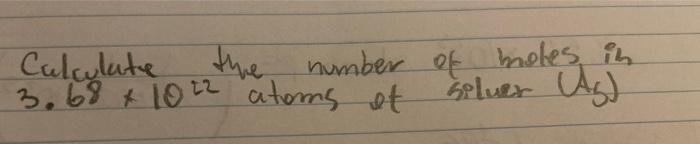 Calculate the number of moles in
3.68 x 10²² atoms of silver (Ag)